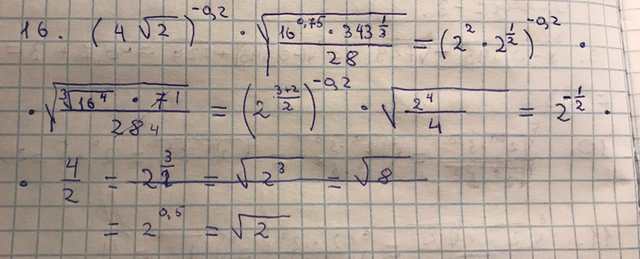 16. (4√2)^-0,2 · √(16^0,75 · 343^(1/3) / 28) = (2^2 · 2^(1/2))^-0,2 ·
· √(∛16^4 · 7^1 / 28 4) = (2^((3+2)/2))^-0,2 · √(2^4 / 4) = 2^(-1/2) ·
· 4/2 = 2^(3/2) = √2^3 = √8
= 2^0,5 = √2